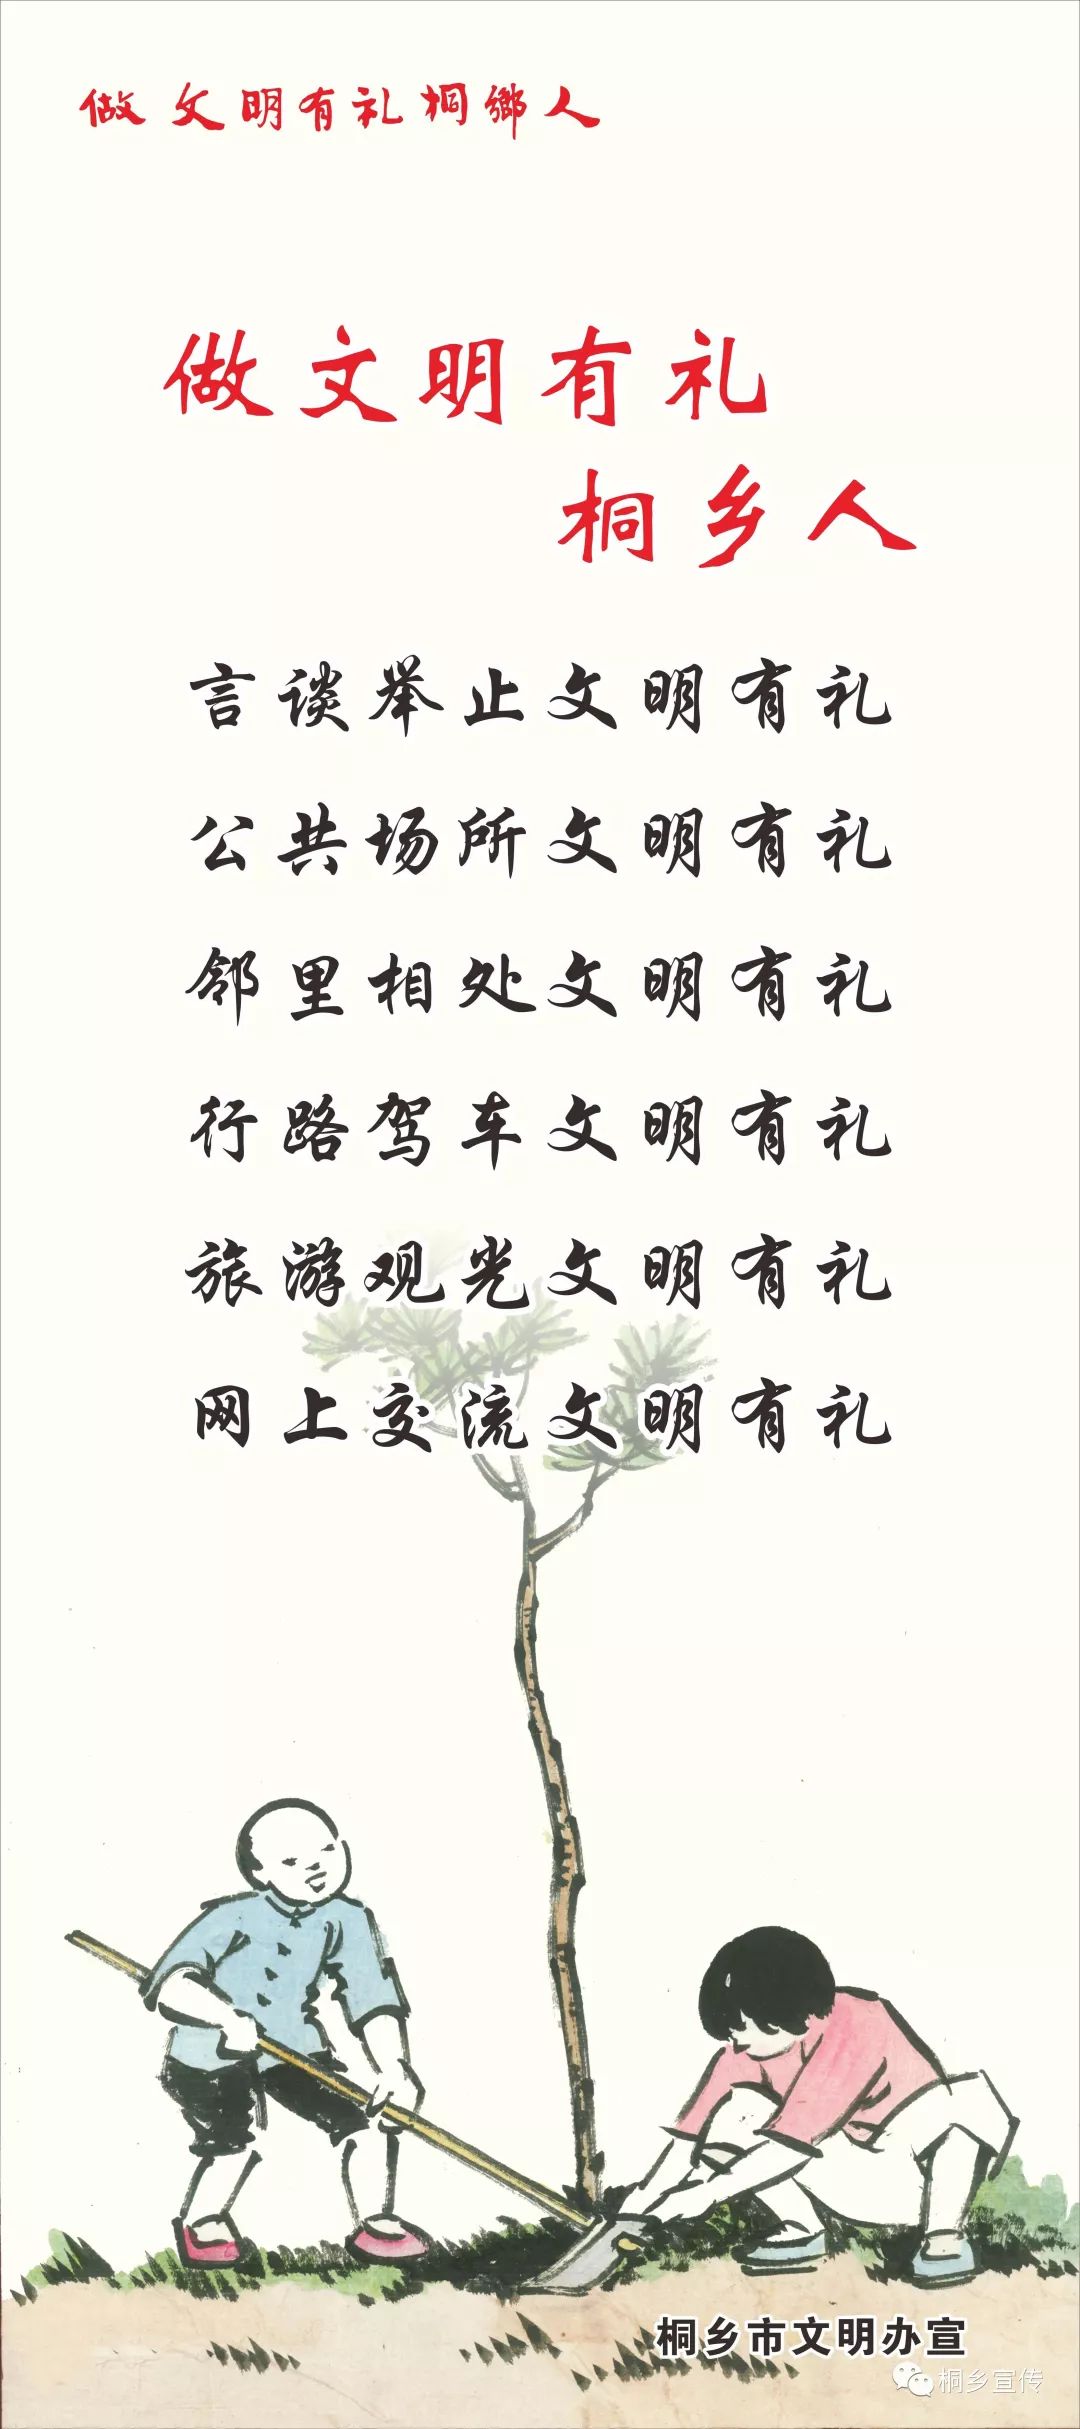 做文明有礼桐鄉人
做文明有礼
桐乡人
言谈举止文明有礼
公共场所文明有礼
邻里相处文明有礼
行路驾车文明有礼
旅游观光文明有礼
网上交流文明有礼
桐乡市文明办宣
桐乡宣传